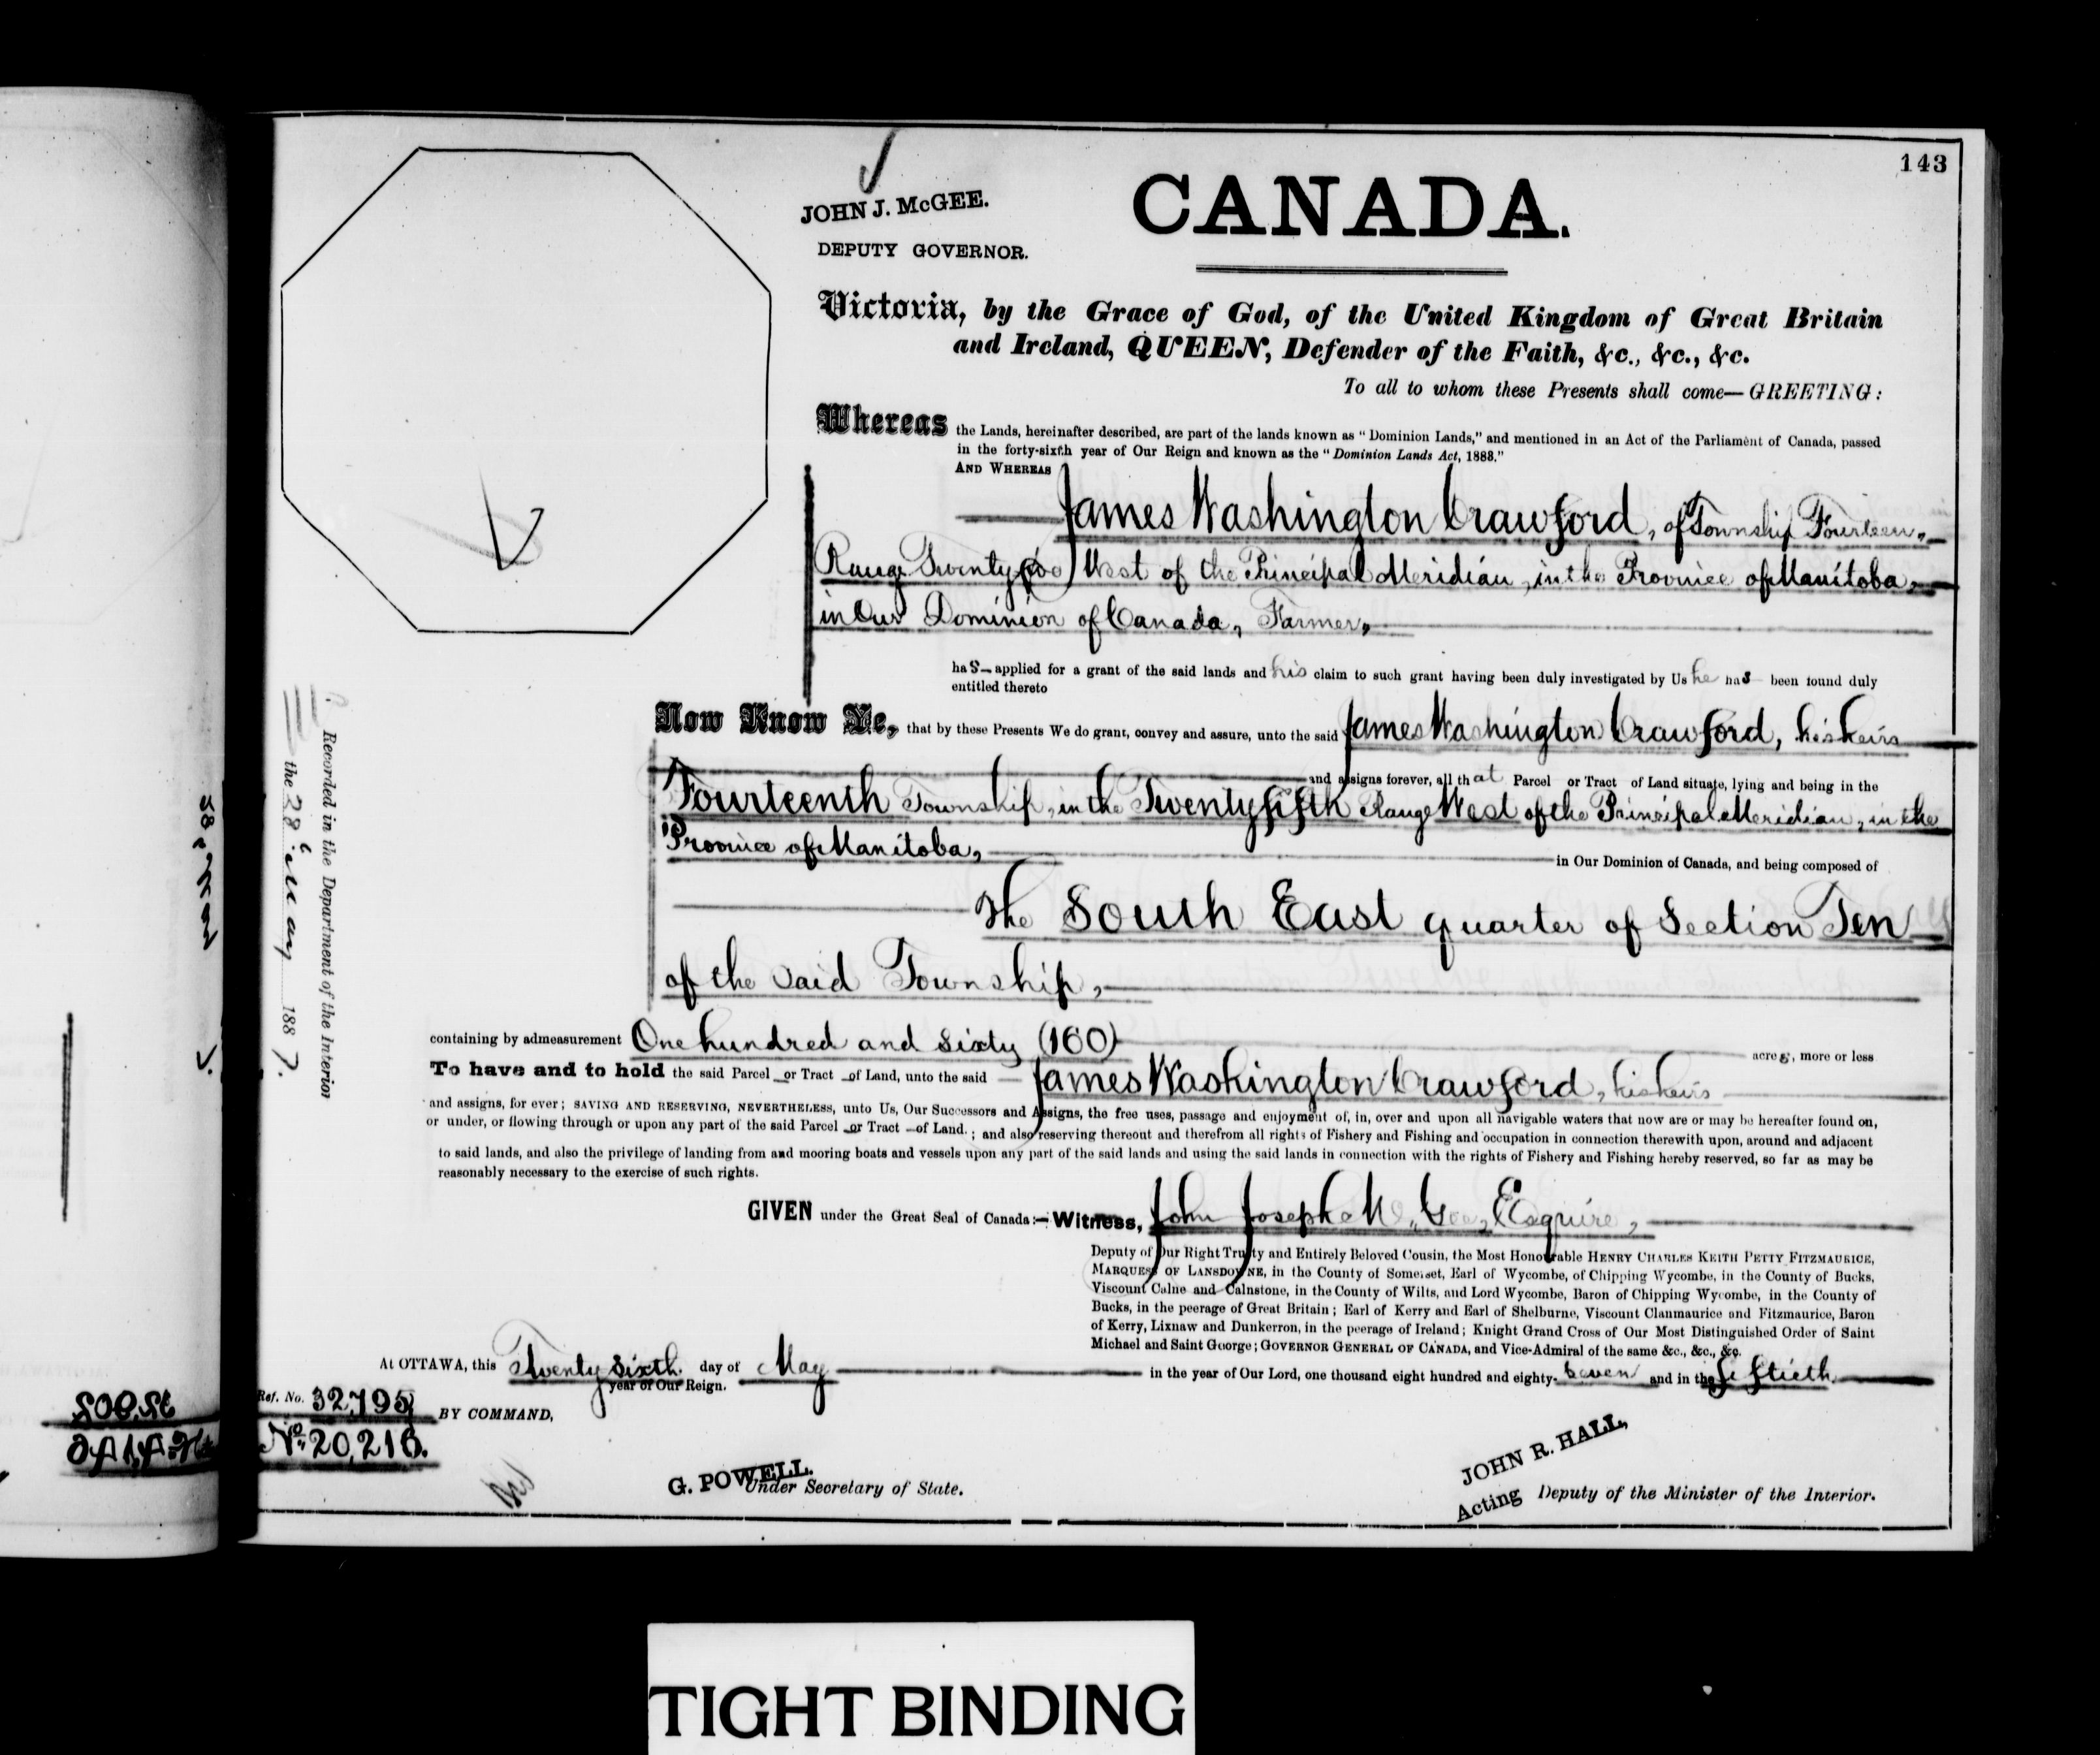 143
JOHN J. McGEE.
DEPUTY GOVERNOR.
CANADA.
Victoria, by the Grace of God, of the United Kingdom of Great Britain
and Ireland, QUEEN, Defender of the Faith, &c., &c., &c.
To all to whom these Presents shall come—GREETING:
Whereas the Lands, hereinafter described, are part of the lands known as "Dominion Lands," and mentioned in an Act of the Parliament of Canada, passed
in the forty-sixth year of Our Reign and known as the "Dominion Lands Act, 1883."
AND WHEREAS
James Washington Crawford, of Township Fourteen,
Range Twenty five West of the Principal Meridian, in the Province of Manitoba,
in Our Dominion of Canada, Farmer,
has applied for a grant of the said lands and his claim to such grant having been duly investigated by Us he has been found duly
entitled thereto
Now Know Ye, that by these Presents We do grant, convey and assure, unto the said James Washington Crawford, his heirs
and assigns forever, all that Parcel or Tract of Land situate, lying and being in the
Fourteenth Township, in the Twenty fifth Range West of the Principal Meridian, in the
Province of Manitoba,
in Our Dominion of Canada, and being composed of
The South East quarter of Section Ten
of the said Township,
containing by admeasurement One hundred and sixty (160)
acres, more or less
To have and to hold the said Parcel or Tract of Land, unto the said James Washington Crawford, his heirs
and assigns, for ever; SAVING AND RESERVING, NEVERTHELESS, unto Us, Our Successors and Assigns, the free uses, passage and enjoyment of, in, over and upon all navigable waters that now are or may be hereafter found on,
or under, or flowing through or upon any part of the said Parcel or Tract of Land; and also reserving thereout and therefrom all rights of Fishery and Fishing and occupation in connection therewith upon, around and adjacent
to said lands, and also the privilege of landing from and mooring boats and vessels upon any part of the said lands and using the said lands in connection with the rights of Fishery and Fishing hereby reserved, so far as may be
reasonably necessary to the exercise of such rights.
GIVEN under the Great Seal of Canada:—Witness, John Joseph McGee, Esquire,
Deputy of Our Right Trusty and Entirely Beloved Cousin, the Most Honourable HENRY CHARLES KEITH PETTY FITZMAURICE,
MARQUESS OF LANSDOWNE, in the County of Somerset, Earl of Wycombe, of Chipping Wycombe, in the County of Bucks,
Viscount Calne and Calnstone, in the County of Wilts, and Lord Wycombe, Baron of Chipping Wycombe, in the County of
Bucks, in the peerage of Great Britain; Earl of Kerry and Earl of Shelburne, Viscount Clanmaurice and Fitzmaurice, Baron
of Kerry, Lixnaw and Dunkerron, in the peerage of Ireland; Knight Grand Cross of Our Most Distinguished Order of Saint
Michael and Saint George; GOVERNOR GENERAL OF CANADA, and Vice-Admiral of the same &c., &c., &c.
At OTTAWA, this Twenty sixth day of May in the year of Our Lord, one thousand eight hundred and eighty-seven and in the fiftieth
year of Our Reign.
Ref. No. 32,795
BY COMMAND,
No. 20,216.
G. POWELL.
Under Secretary of State.
JOHN R. HALL,
Acting Deputy of the Minister of the Interior.
Recorded in the Department of the Interior
the 28th May 1887.
TIGHT BINDING